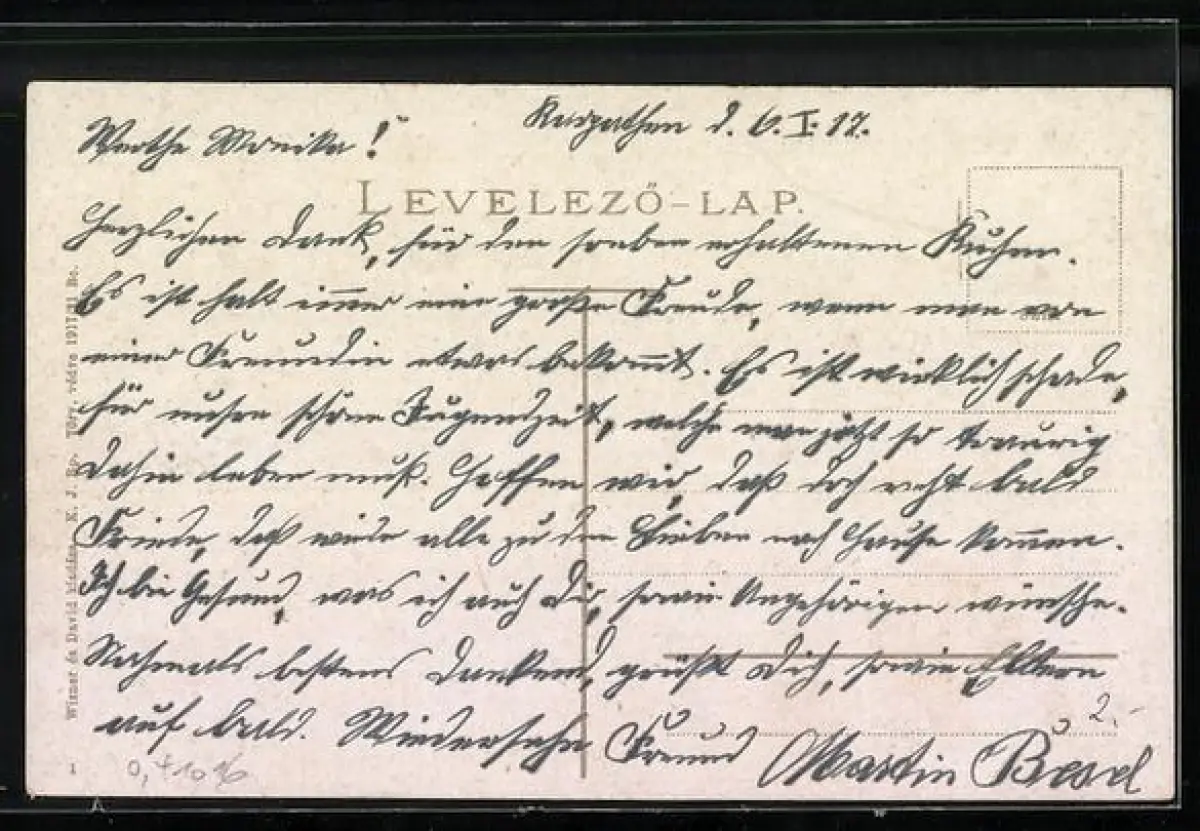 Karpathen d. 6.I.17.
Werthe Monika!
LEVELEZŐ-LAP.
Herzlichen Dank, für den soeben erhaltenen Kuchen.
Es ist halt immer eine große Freude, wenn man von
einer Freundin etwas bekommt. Es ist wirklich schade,
für unsere schöne Jugendzeit, welche man jetzt so traurig
dahin leben muß. Hoffen wir, daß doch recht bald
Friede, daß wieder alle zu den Lieben nach Hause kommen.
Ich bin Gesund, was ich auch Dir, sowie Angehörigen wünsche.
Nochmals bestens dankend, grüßt Dich, sowie Eltern
auf bald. Wiedersehn Freund Martin
2.-
K. J. 1917
1